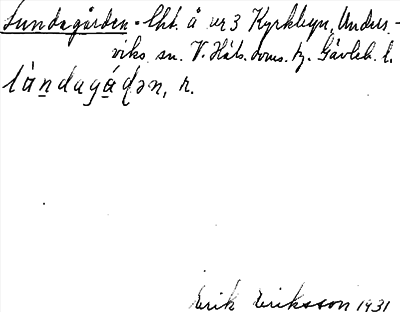 Lundagården - lht. å nr 3 Kyrkbyn, Unders-
viks sn. V. Häls. doms. tg. Gävleb. l.
lùndagádən, n.
Erik Eriksson 1931